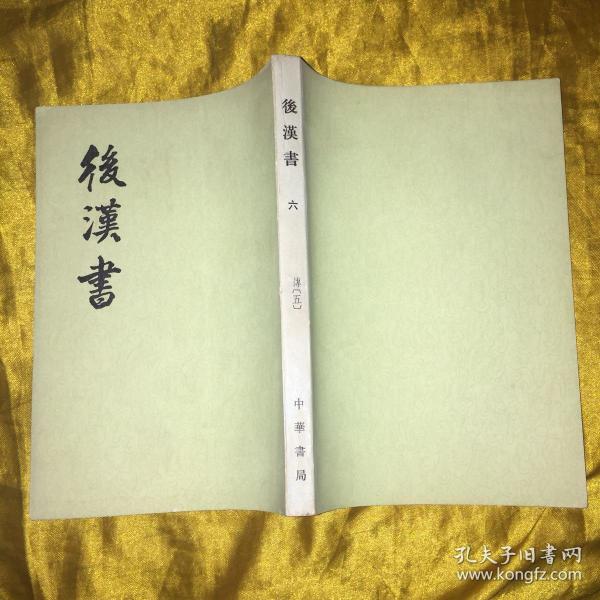 後漢書
後漢書
六
傳〔五〕
中華書局
孔夫子旧書网
www.kongfz.com